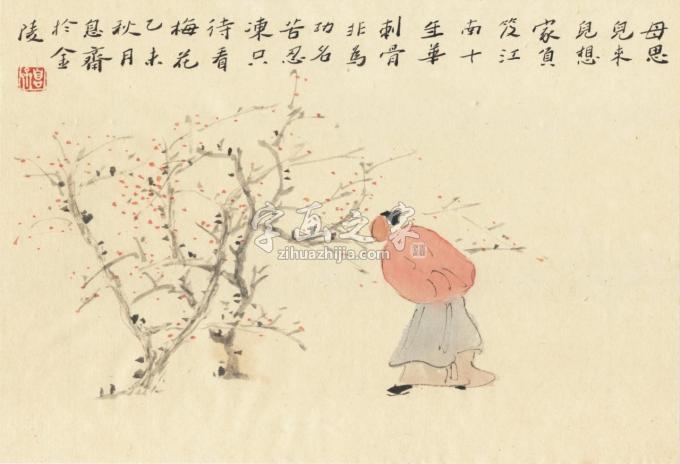 母思
兒来
兒想
家負
笈江
南十
年華
刺骨
非為
功名
苦忍
凍只
待看
梅花
乙未
秋月
息齋
於金
陵
字画之家
zihuazhijia.com